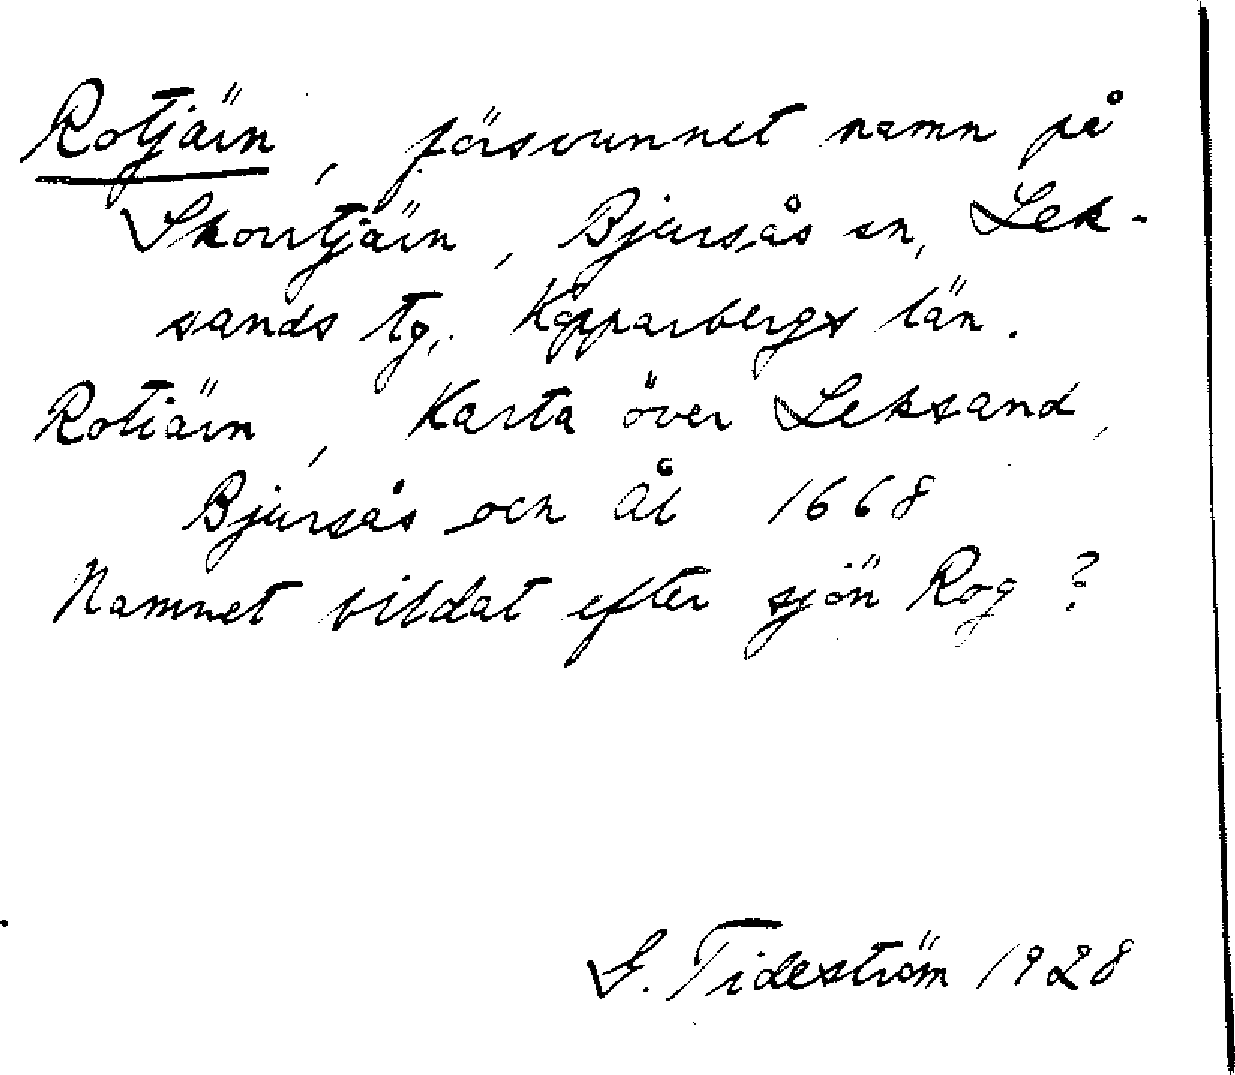 Rotjärn, försvunnet namn på
Skovtjärn, Bjursås sn, Lek-
sands tg, Kopparbergs län.
Rotiärn, Karta över Leksand,
Bjursås och Ål 1668
Namnet bildat efter sjön Rog?
G. Tideström 1928